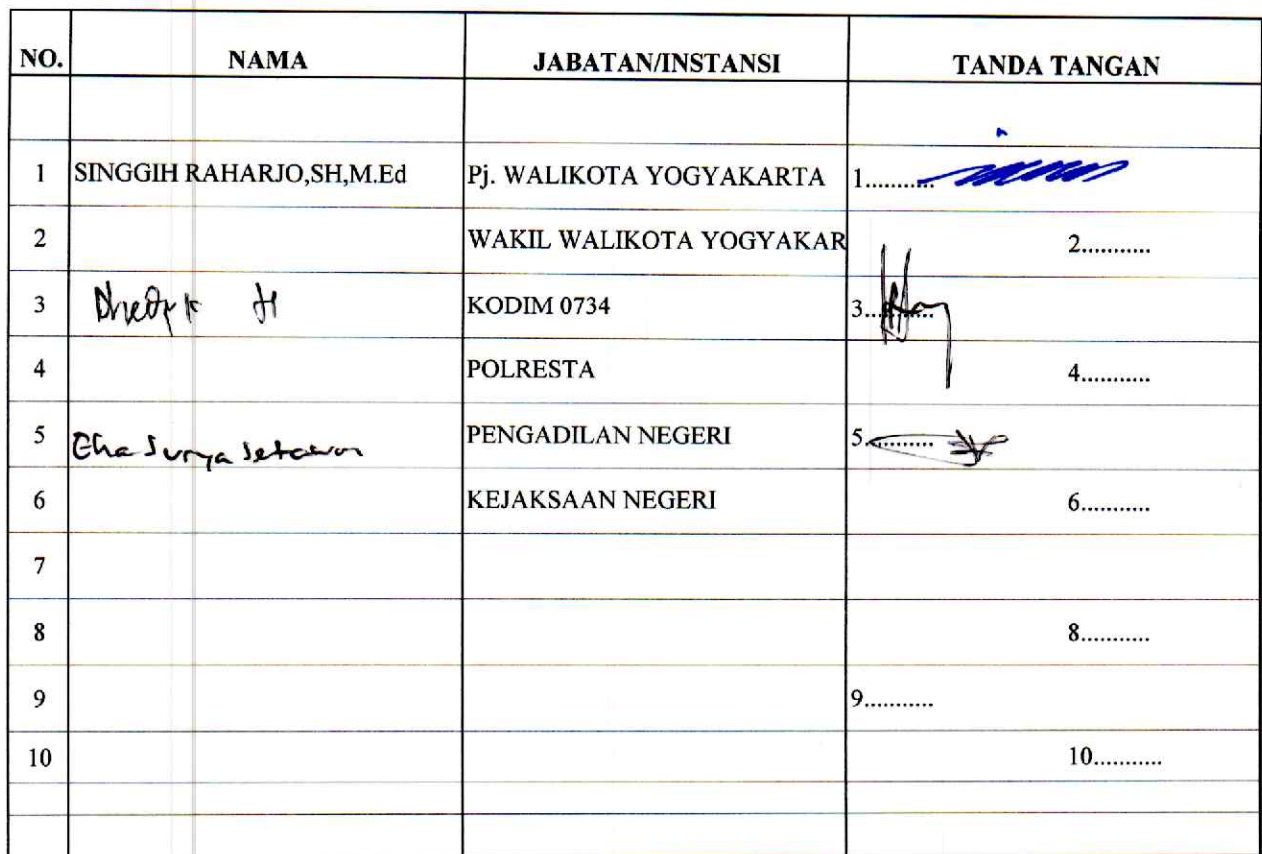 NO. NAMA JABATAN/INSTANSI TANDA TANGAN
1 SINGGIH RAHARJO,SH,M.Ed Pj. WALIKOTA YOGYAKARTA 1...........
2 WAKIL WALIKOTA YOGYAKAR 2...........
3 H KODIM 0734 3...........
4 POLRESTA 4...........
5 Eka Surya Setawan PENGADILAN NEGERI 5...........
6 KEJAKSAAN NEGERI 6...........
7
8 8...........
9 9...........
10 10...........